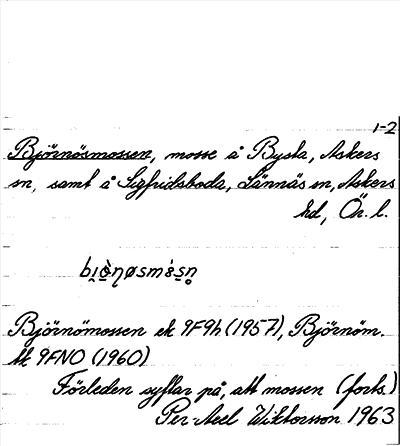 1-2
Björnösmossen, mosse å Bysta, Askers
sn, samt å Sigfridsboda, Lännäs sn, Askers
hd, Ör. l.
Björnömossen ek 9F9h (1957), Björnöm.
tk 9FNO (1960)
Förleden syftar på, att mossen (forts.)
Per Axel Wiktorsson 1963